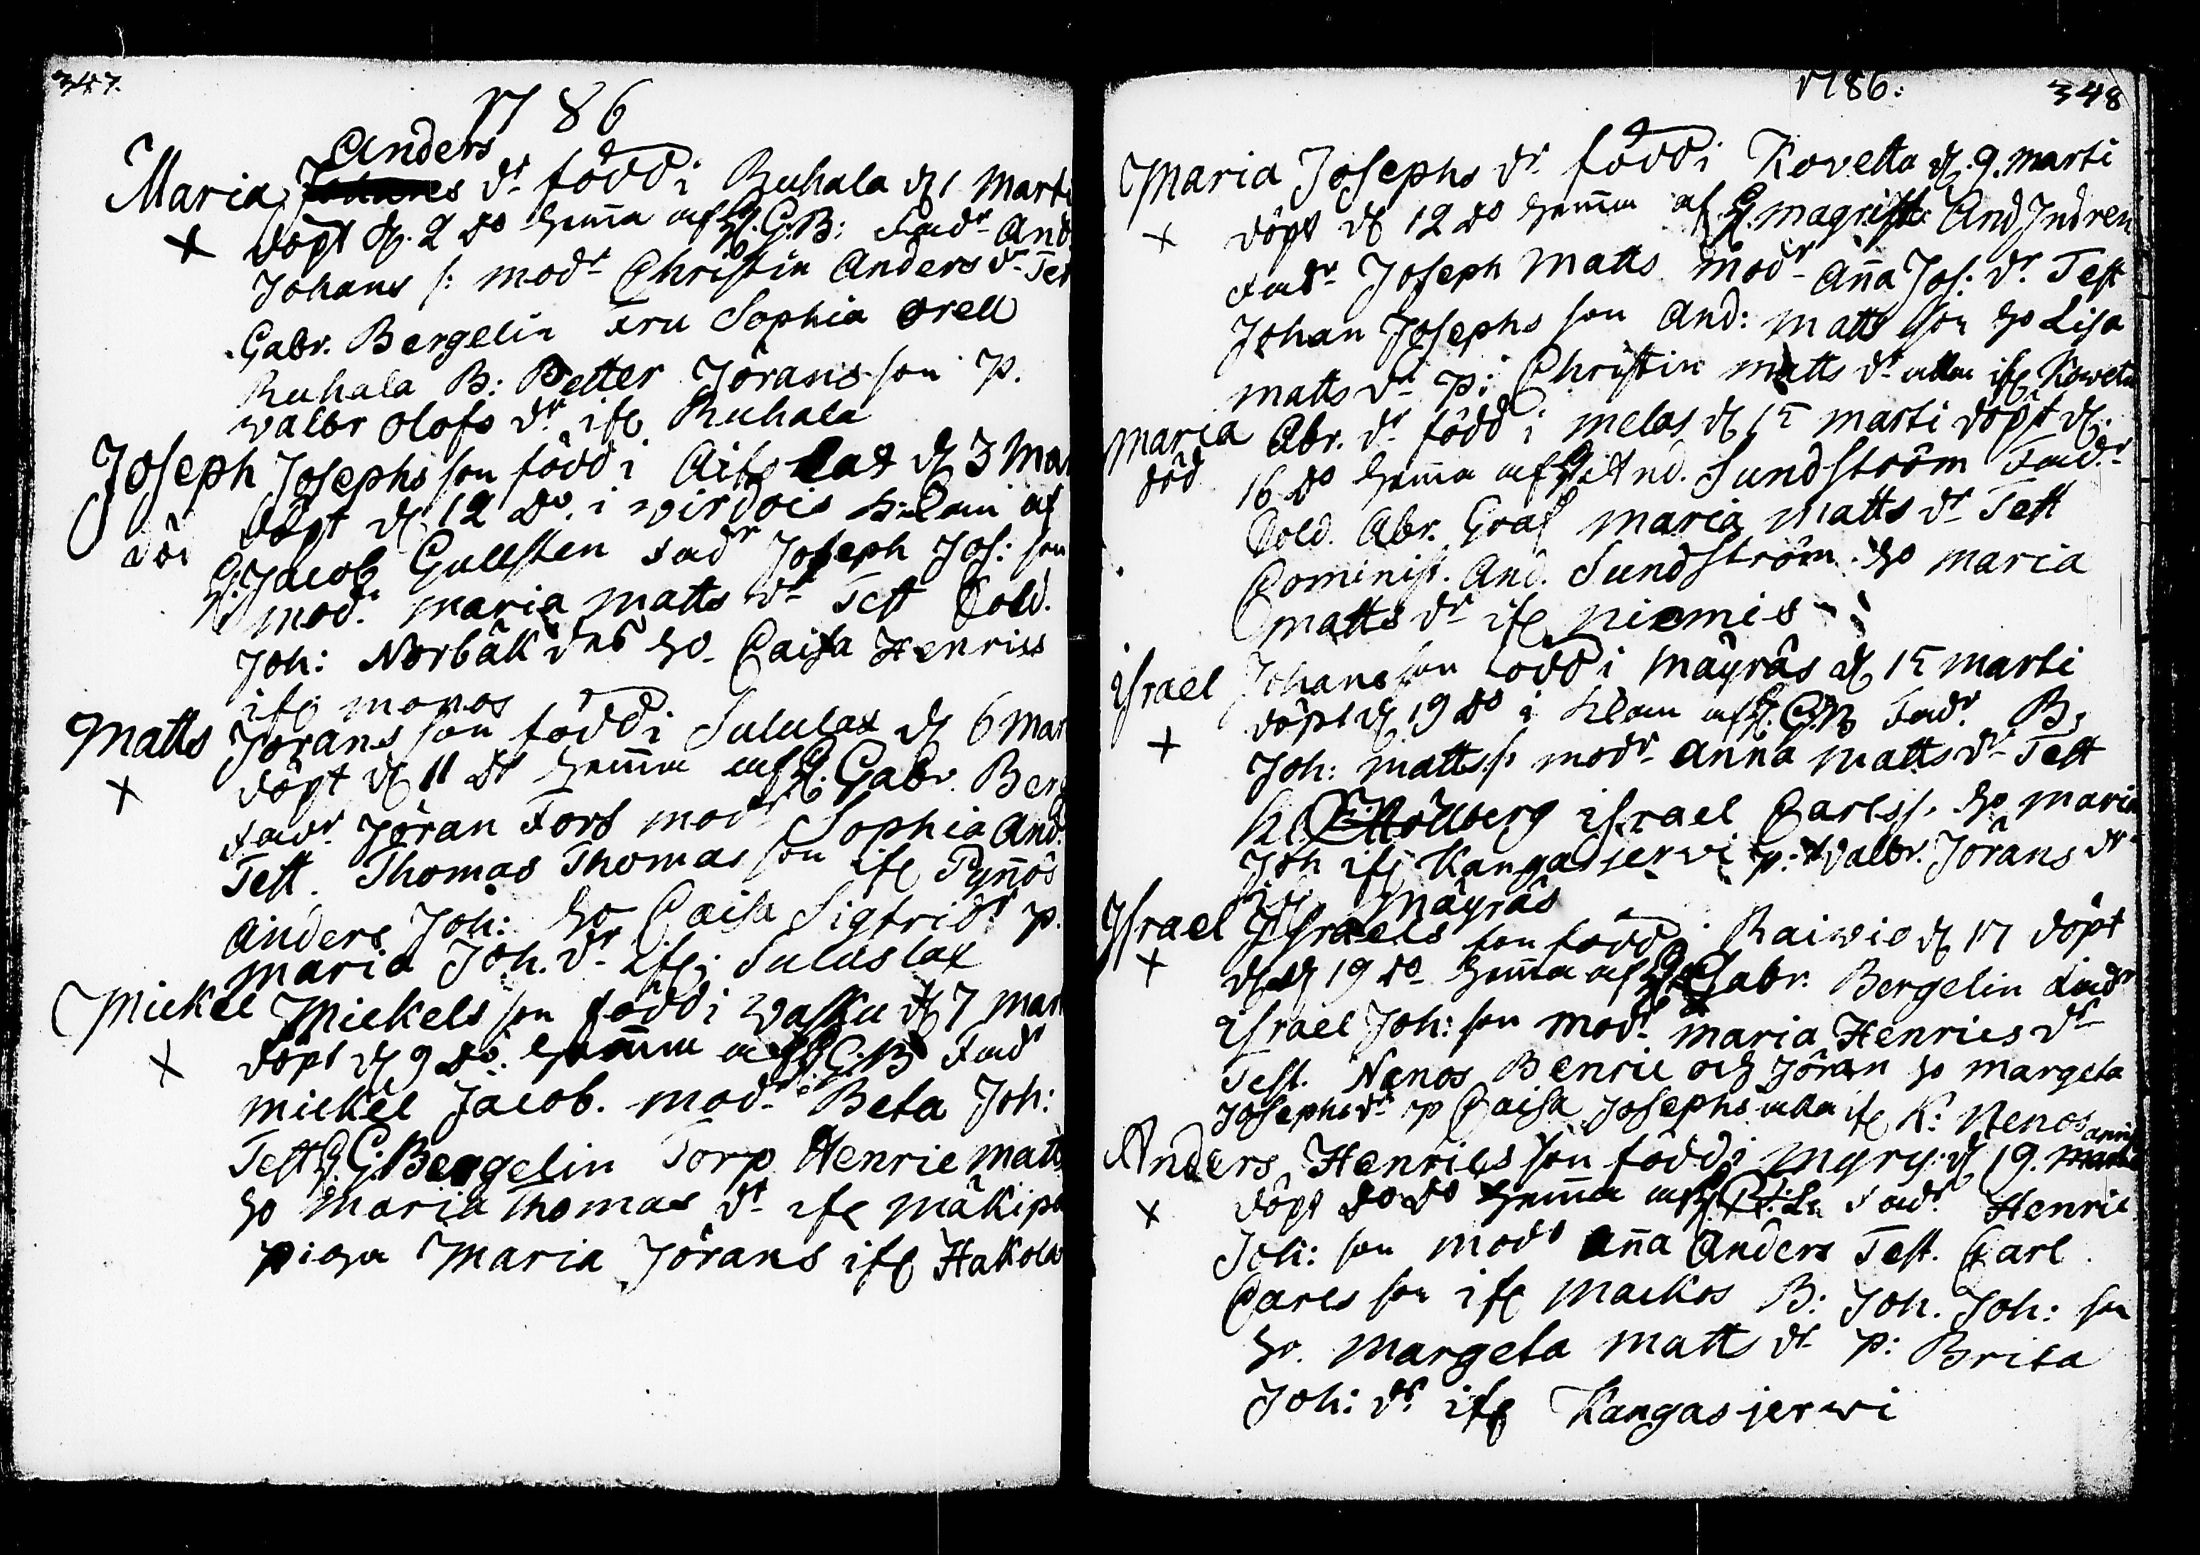 347.
1786
Anders
Maria Johanes dr. född i Ruhala d 1 Marti
döpt d. 2 do hemma af H. G.B: Fadr And
Johans s: modr Christin Anders dr Test
Gabr. Bergelin Fru Sophia orell
Ruhala B: Petter Jörans son p.
walbr olofs dr ifr Ruhala
Joseph Josephs son född i Aits lax d 3 Mar
död döpt d 12 do. i wirdois h: af
H. Jacob Gullsten Fadr Joseph Jos: son
modr. maria matts dr Test Sold.
Joh: Norbäk ho. Caisa Henriss
ifr monos
Matts Jörans son född i Sululax d 6 Mar
+ döpt d 11 do hemma af H. Gabr. Berg
Fadr Jöran Fors modr Sophia And.
Test. Thomas Thomas son ifr Pynnös
Anders Joh: ho Caisa Sigfridr p.
maria Joh. dr ifr Suluslax
Mickel Mickels son född i wasku d 7 mar
+ döpt d 9 do. hemma af H G:B Fadr
mickel Jacob. modr Beta Joh:
Test H. G: Bergelin Torp Henric matts
ho Maria Thomas dr ifr mäkipä
piga Maria Jörans ifr Hakola
1786:
348
Maria Josephs dr född i Kovetta d. 9. marti
+ döpt d 12 do hemma af H. magristr And Indren
Fadr Joseph Matts modr Anna Jos: dr. Test
Johan Josephs son And: matts son ho Lisa
matts dr p: Christin matts dr alla ifr Koweta
Maria Abr. dr född i melas d 15 marti döpt d.
död 16 do hemma af H. And. Sundström Fadr
Sold. Abr. Graf maria matts dr Test
Cominist. And. Sundström ho maria
matts dr ifr niemis
israel Johans son född i Mäyräs d 15 marti
+ döpt d 19 do i af H. G.B Fadr. B,
Joh: matts s: modr anna matts dr Test
israel Carls s. ho maria
Joh ifr Kangasjerwi p: walbr. Jörans dr
ifr Mäyräs
Israel Israels son född i Raiwio d 17 döpt
+ d 19 do hemma af H Gabr. Bergelin Fadr
israel Joh: son modr maria Henrics dr
Test. Nenos Benric och Jöran ho margeta
Josephs dr p Caisa Josephs alla ifr K: Nenos
april
Anders Henrics son född i myry: d 19. marti
+ döpt do do hemma af H. Fadr Henric
Joh: son modr anna Anders Test. Carl
Carls son ifr mackos B: Joh. Joh: son
ho. margeta matts dr p: Brita
Joh: dr ifr Kangasjerwi